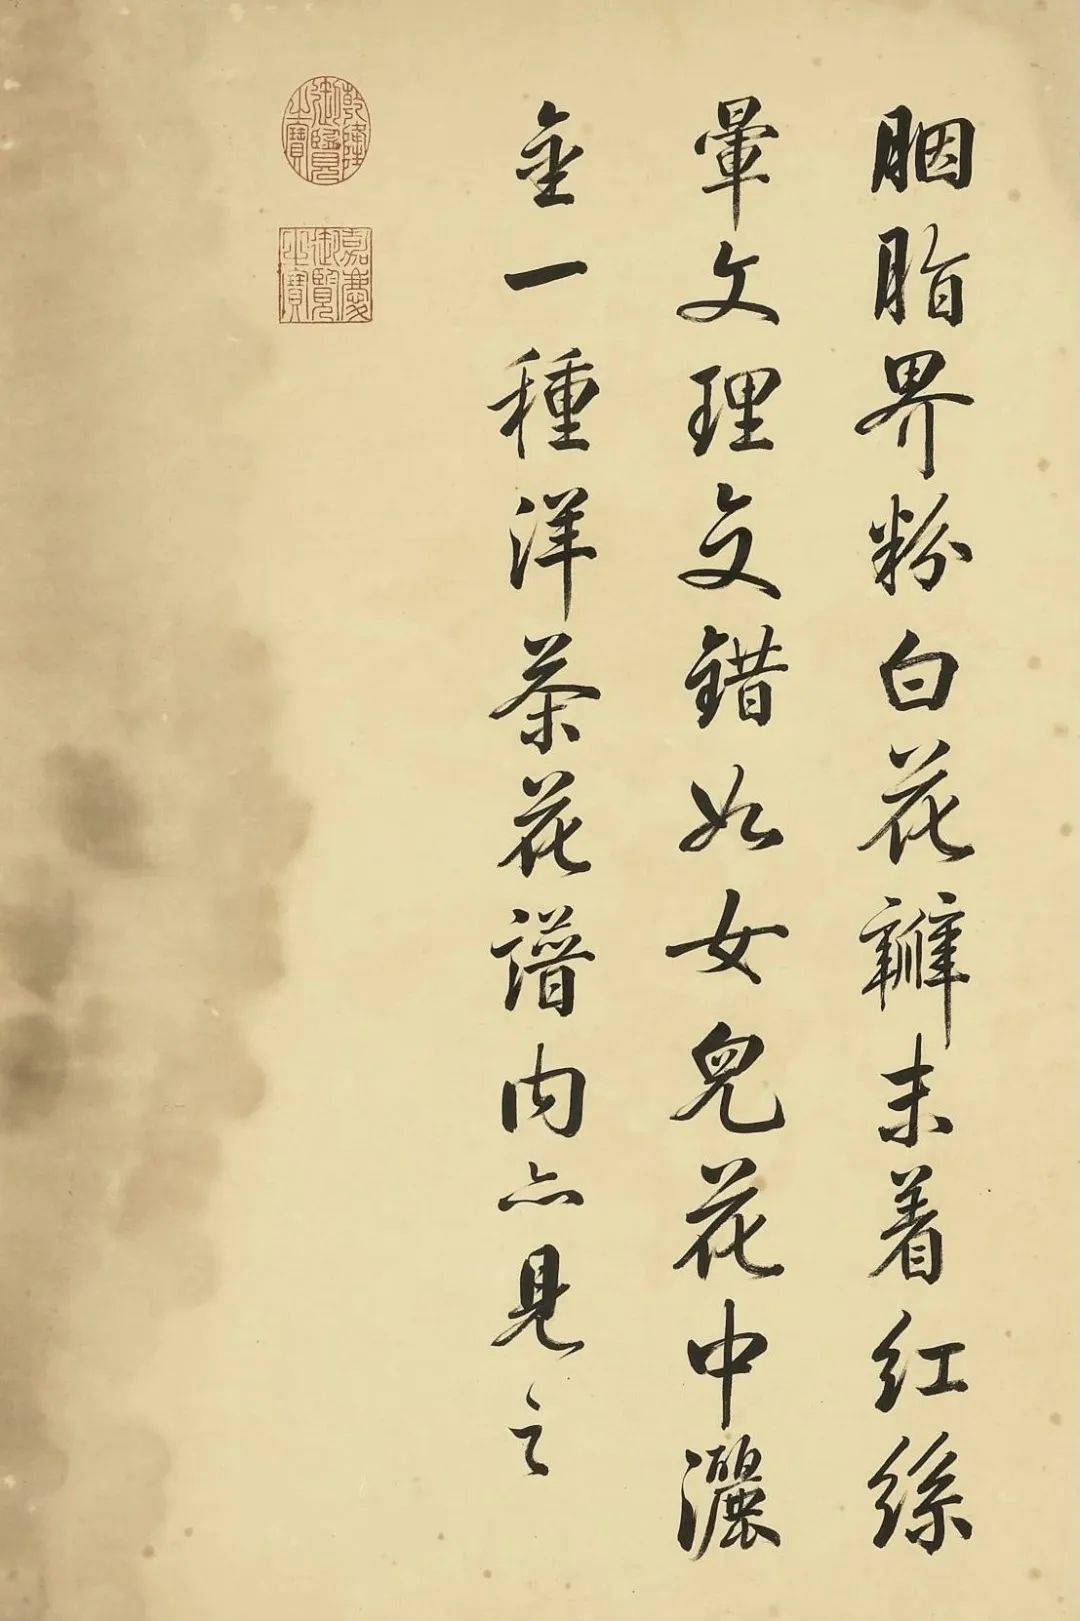 胭脂界粉白花瓣末着红絲
暈文理交錯如女兒花中灑
金一種洋茶花譜内亦見之
乾隆御覽之寶
嘉慶御覽之寶